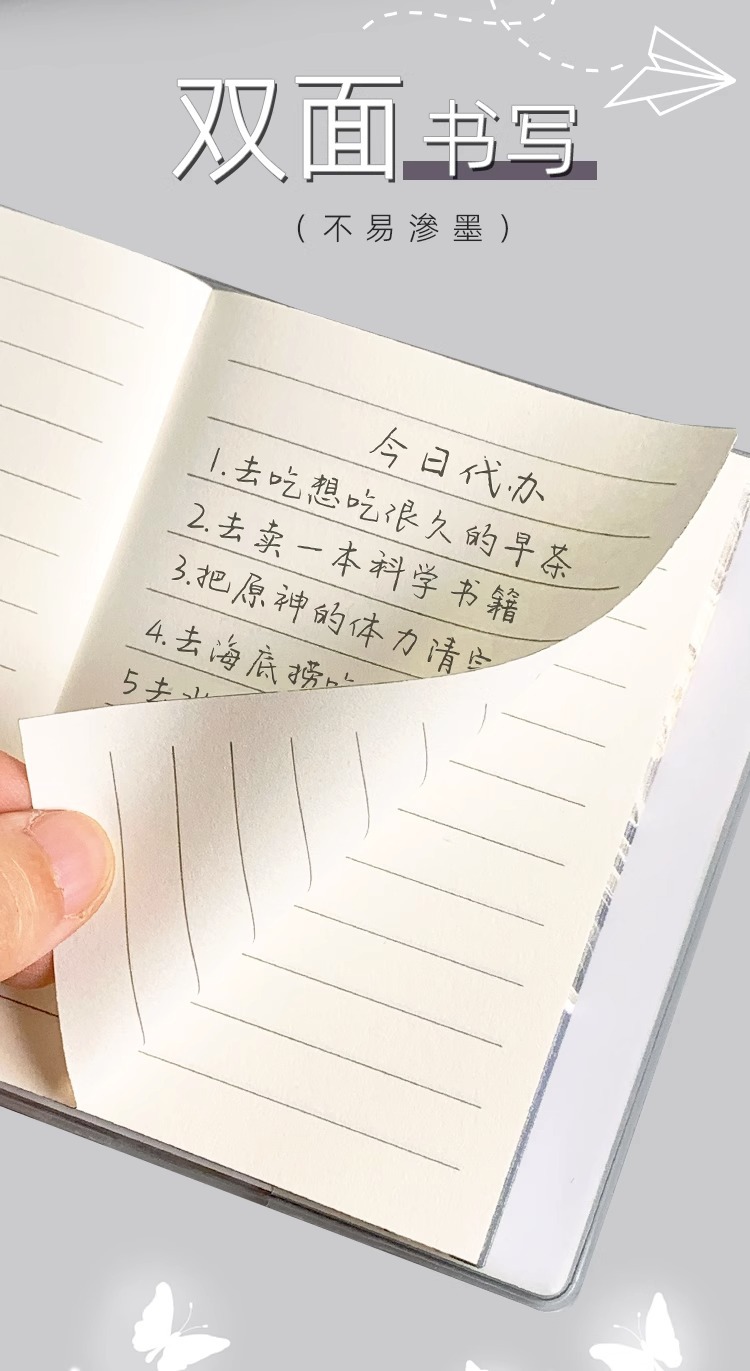 双面书写
(不易滲墨)
今日代办
1.去吃想吃很久的早茶
2.去卖一本科学书籍
3.把原神的体力清
4.去海底捞吃
5去